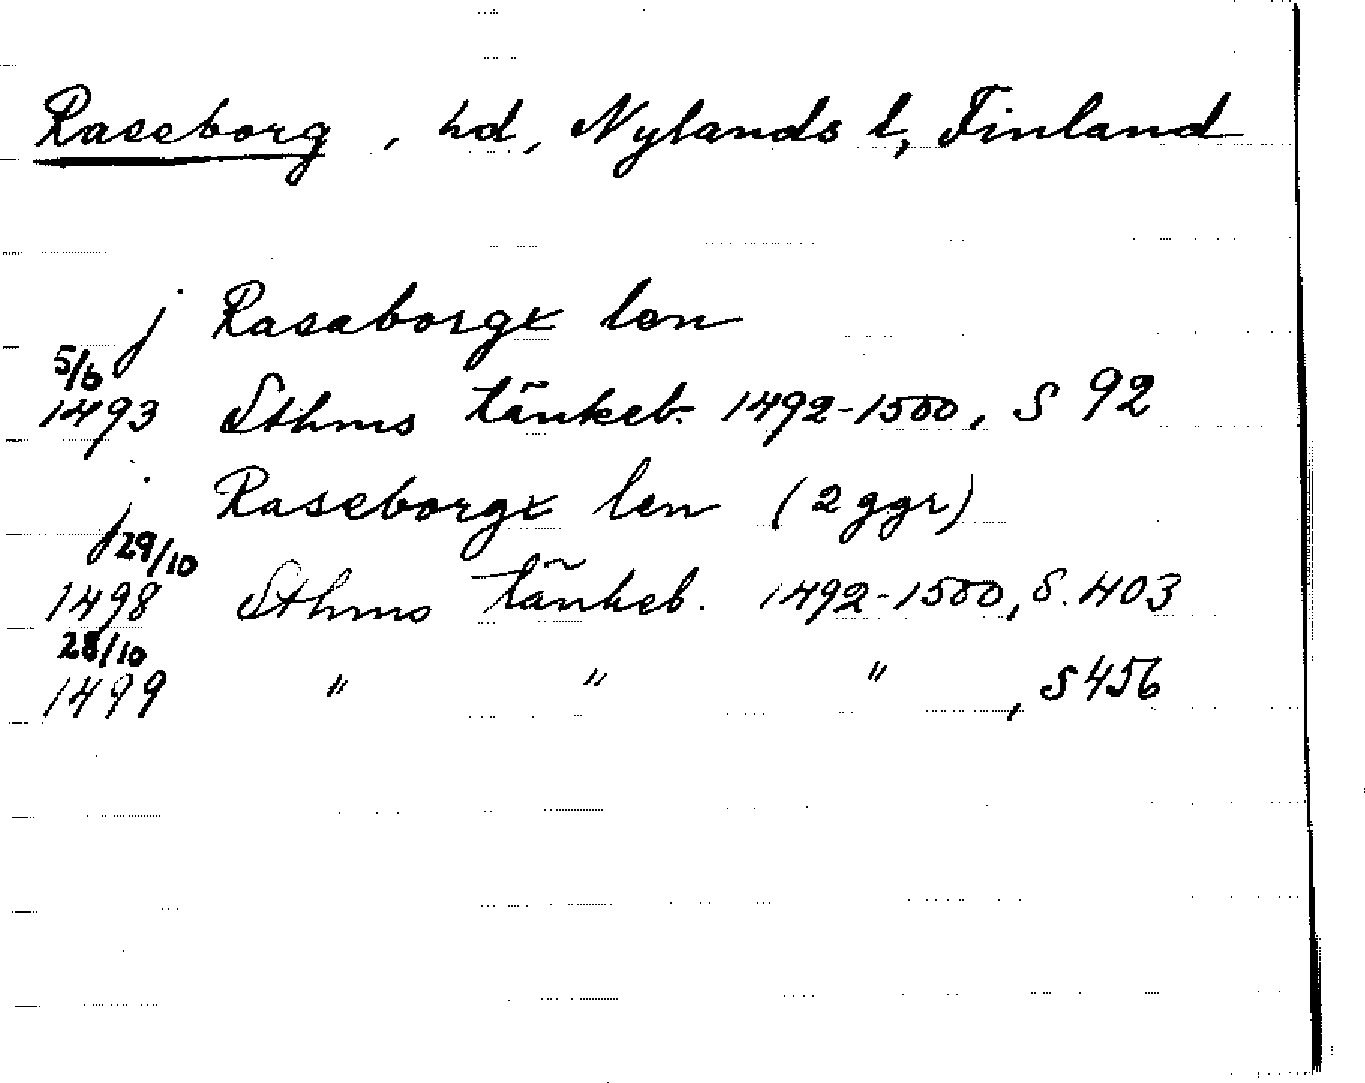 Raseborg, hd, Nylands l, Finland
j Rasaborgx len
5/6
1493 Sthms tänkeb. 1492-1500, S 92
j Raseborgx len (2 ggr)
29/10
1498 Sthms tänkeb. 1492-1500, S. 403
28/10
1499 " " " , S 456